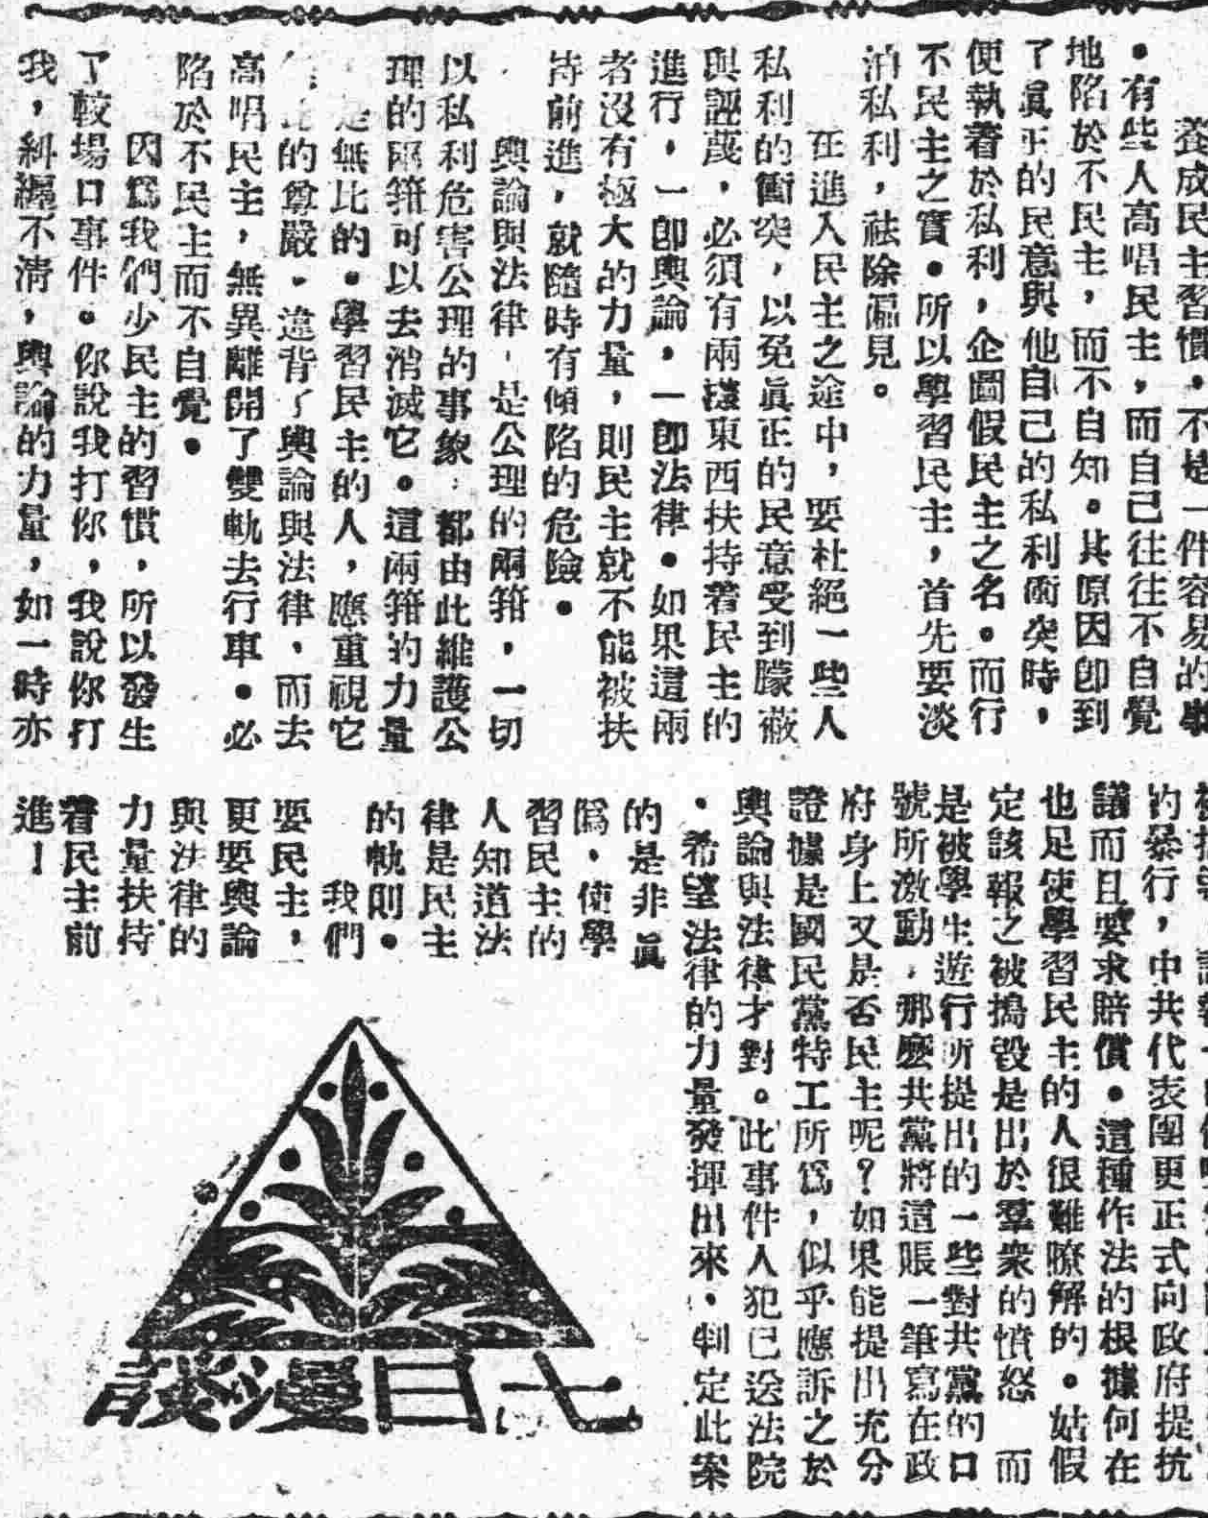 養成民主習慣，不是一件容易的事
。有些人高唱民主，而自己往往不自覺
地陷於不民主，而不自知。其原因卽到
了眞正的民意與他自己的私利衝突時，
便執着於私利，企圖假民主之名。而行
不民主之實。所以學習民主，首先要淡
泊私利，祛除偏見。
在進入民主之途中，要杜絕一些人
私利的衝突，以免眞正的民意受到朦蔽
與誣蔑，必須有兩樣東西扶持着民主的
進行，一卽輿論，一卽法律。如果這兩
者沒有極大的力量，則民主就不能被扶
持前進，就隨時有傾陷的危險。
輿論與法律，是公理的兩箝，一切
以私利危害公理的事象，都由此維護公
理的兩箝可以去消滅它。這兩箝的力量
是無比的。學習民主的人，應重視它
的尊嚴，違背了輿論與法律，而去
高唱民主，無異離開了雙軌去行車。必
陷於不民主而不自覺。
因爲我們少民主的習慣，所以發生
了較場口事件。你說我打你，我說你打
我，糾纏不清，輿論的力量，如一時亦
的暴行，中共代表團更正式向政府提抗
議而且要求賠償。這種作法的根據何在
也足使學習民主的人很難瞭解的。姑假
定該報之被搗毀是出於羣衆的憤怒 而
是被學生遊行所提出的一些對共黨的口
號所激動，那麼共黨將這賬一筆寫在政
府身上又是否民主呢？如果能提出充分
證據是國民黨特工所爲，似乎應訴之於
輿論與法律才對。此事件人犯已送法院
。希望法律的力量發揮出來，判定此案
的是非眞
僞，使學
習民主的
人知道法
律是民主
的軌則。
我們
要民主，
更要輿論
與法律的
力量扶持
着民主前
進！
七日漫談